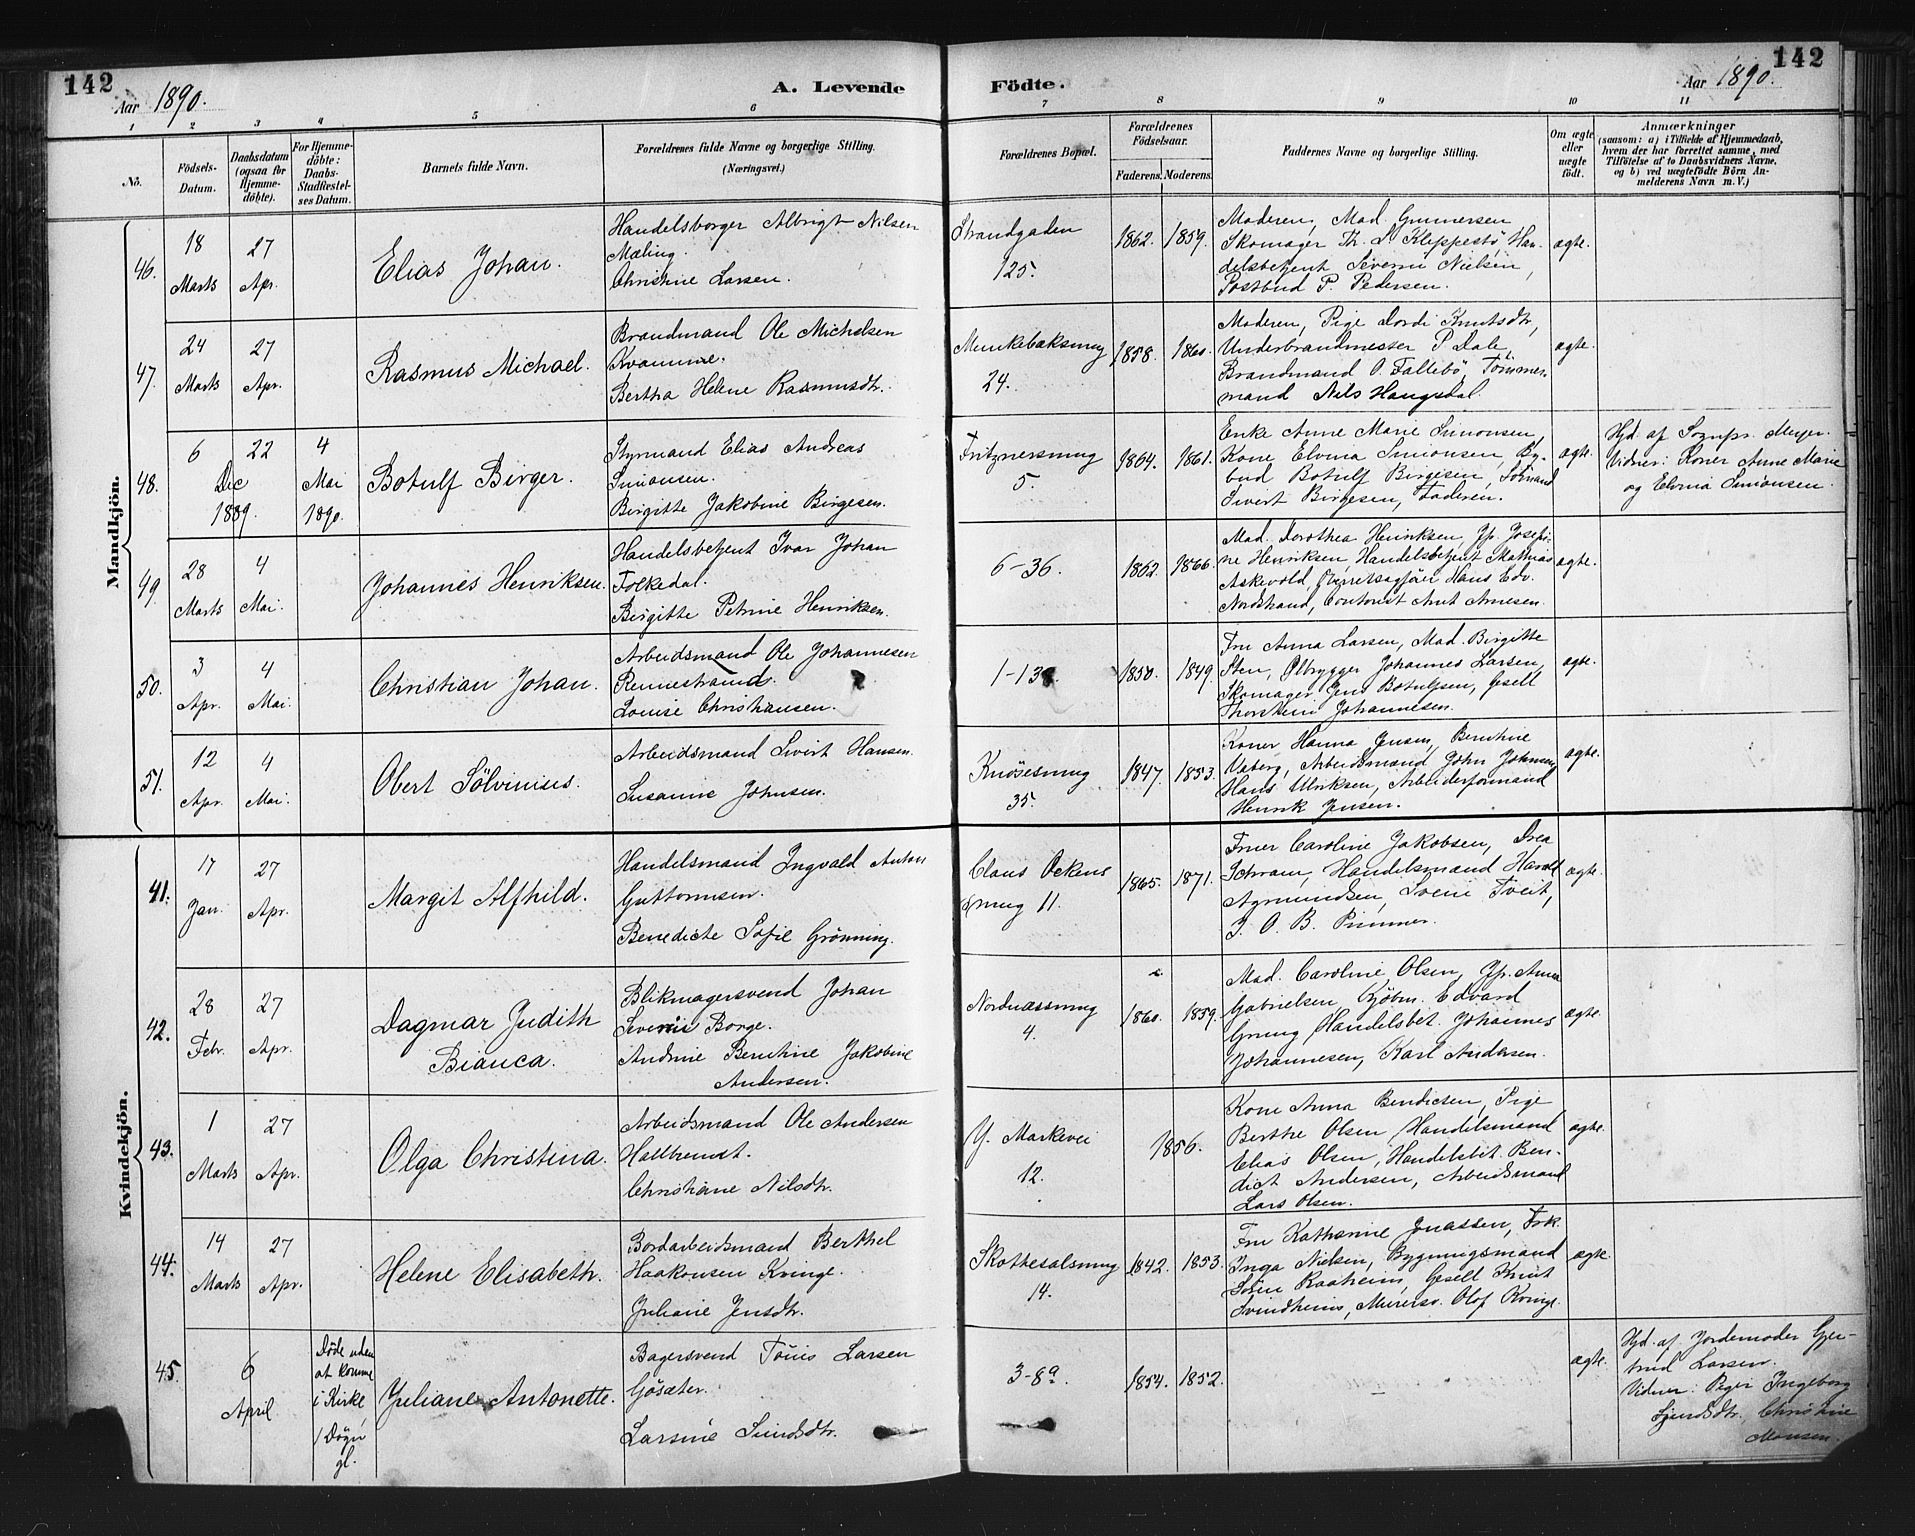 142
Aar 1890.
A. Levende
Födte.
Aar 1890.
142
1 2 3 4 5 6 7 8 9 10 11
No.
Födsels-Datum.
Daabsdatum (ogsaa for Hjemmedöbte).
For Hjemmedöbte: Daabs-Stadfæstelses Datum.
Barnets fulde Navn.
Forældrenes fulde Navne og borgerlige Stilling. (Næringsvei.)
Forældrenes Bopæl.
Forældrenes Födselsaar.
Faderens. Moderens.
Faddernes Navne og borgerlige Stilling.
Om ægte eller uægte födt.
Anmærkninger
(saasom: a) i Tilfælde af Hjemmedaab, hvem der har forrettet samme, med Tilföielse af to Daabsvidners Navne, og b) ved uægtefödte Börn Anmelderens Navn m. V.)
Mandkjön.
46.
18 Marts
27 Apr.
Elias Johan.
Handelsborger Albrigt Nilsen
Mæling.
Christine Larsen.
Strandgaden
125.
1862. 1859.
Moderen, Mad. Gunnersen
Skomager Th. S. Kleppestø, Han-
delsbetjent Severin Nielsen,
Postbud P. Pedersen.
ægte.
47.
24 Marts
27 Apr.
Rasmus Michael.
Brandmand Ole Michelsen
Kvamme.
Bertha Helene Rasmusdtr.
Munkebæksmug
24.
1858. 1860.
Moderen, Pige Dordi Knutsdtr,
Underbrandmester P Dale,
Brandmand O. Fallebö, Tømmer-
mand Nils Haugsdal.
ægte.
48.
6 Dec 1889.
22
4 Mai 1890.
Botulf Birger.
Styrmand Elias Andreas
Simonsen.
Birgitte Jakobine Birgesen.
Fritznersmug
5.
1864. 1861.
Enke Anne Marie Simonsen,
Kone Elvina Simonsen, By-
bud Botulf Birgesen, Sömand
Sivert Birgesen, Faderen.
ægte.
Hjd. af Sognpr. Meyer.
Vidner: Koner Anne Marie
og Elvina Simonsen.
49.
28 Marts
4 Mai.
Johannes Henriksen.
Handelsbetjent Ivar Johan
Folkedal.
Birgitte Petrine Henriksen.
6-36.
1862. 1866.
Mad. Dorothea Henriksen, Jfr. Josefi-
ne Henriksen, Handelsbetjent Mathias
Askevold, Overretssagfører Hans Edv.
Nordstrand, Contorist Arnt Arnesen.
ægte.
50.
3 Apr.
4 Mai.
Christian Johan.
Arbeidsmand Ole Johannesen
Rennestraund.
Louise Christiansen.
1-13
1850. 1849.
Fru Anna Larsen, Mad. Birgitte
Sten, Ølbrygger Johannes Larsen,
Skomager Jens Botulfsen, Gesell
Thorstein Johannesen.
ægte.
51.
12 Apr.
4 Mai.
Obert Sölvinius.
Arbeidsmand Sivert Hansen.
Susanne Johnsen.
Knösesmug
35.
1847. 1853.
Koner Hanna Jensen, Berntine
Vaberg, Arbeidsmand John Johnsen,
Hans Ulriksen, Arbeiderformand
Henrik Jensen.
ægte.
Kvindekjön.
41.
17 Jan.
27 Apr.
Margit Alfhild.
Handelsmand Ingvald Anton
Guttormsen.
Benedicte Sofie Grönning.
Claus Ockens
smug 11.
1865. 1871.
Fruer Caroline Jakobsen, Drea
Schram, Handelsmand Harold
Agmundsen, Svein Tveit,
J. O. B. Pimmer.
ægte.
42.
28 Febr.
27 Apr.
Dagmar Judith
Bianca.
Blikmagersvend Johan
Severin Borge.
Andrine Berntine Jakobine
Andersen.
Nordnæssmug
4.
1860. 1859.
Mad. Caroline Olsen, Jfr. Anna
Gabrielsen, Kjöbm. Edvard
Grung, Handelsbet. Johannes
Johannesen, Karl Andersen.
ægte.
43.
1 Marts
27 Apr.
Olga Christina.
Arbeidsmand Ole Andersen
Halbrendt.
Christiane Nilsdtr.
Y. Markevei
12.
1856.
Kone Anna Bendictsen, Pige
Berthe Olsen, Handelsmand
Elias Olsen, Handelsbet. Ben-
dict Andersen, Arbeidsmand
Lars Olsen.
ægte.
44.
14 Marts
27 Apr.
Helene Elisabeth.
Bordarbeidsmand Berthel
Haakonsen Kvinge.
Juliane Jensdtr.
Skottesalsmug
14.
1842. 1853.
Fru Kathanne Jonassen, Frk.
Inga Nielsen, Bygningsmand
Sören Raaheim, Gesell Knut
Svindheim, Murersv. Olof Kvinge.
ægte.
45.
6 April
Døde uden
at komme
i Kirke
1 Døgn
gl.
Juliane Antonette.
Bagersvend Tönis Larsen
Gösæter.
Larsine Sundsdtr.
3-8ª.
1854. 1852.
ægte.
Hjd. af Jordemoder Gjer-
trud Larsen.
Vidner: Piger Ingeborg
Sjursdtr. Christine
Monsen.